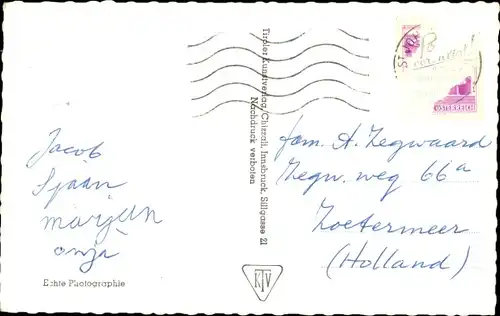 Jacob
Sjaan
marjan
anja
Echte Photographie
Tiroler Kunstverlag, Chizzali, Innsbruck, Sillgasse 21
Nachdruck verboten
KTV
ÖSTERREICH
fam. A. Zegwaard
Zegw. weg 66a
Zoetermeer
(Holland)